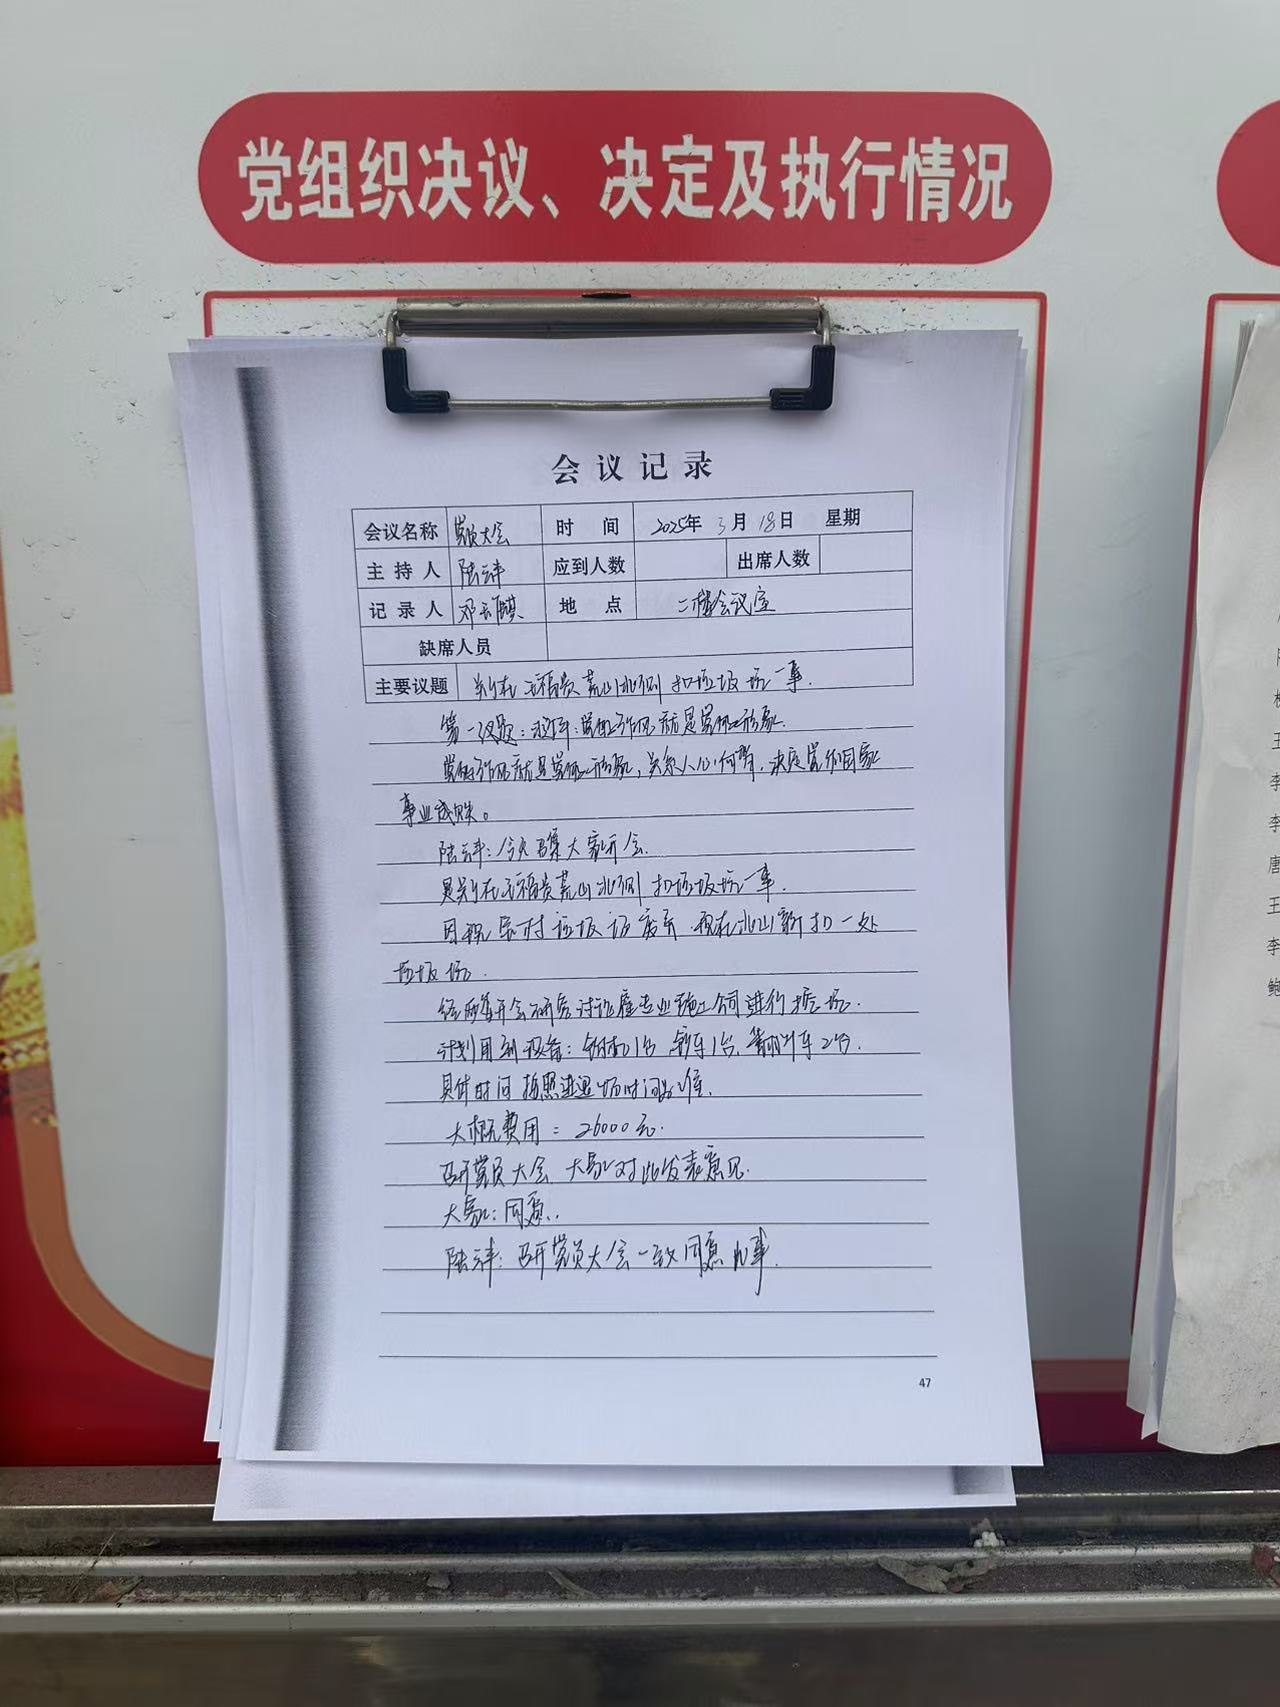 党组织决议、决定及执行情况
会议记录
会议名称 党员大会 时 间 2025年 3月 18日 星期
主持人 陆云沣 应到人数 出席人数
记录人 邓云麒 地 点 二楼会议室
缺席人员
主要议题 关于在王福贵荒山北侧 扣垃圾坑一事.
第一议题: 党的作风就是党的形象.
党的作风就是党的形象, 关系人心向背, 决定党和国家
事业成败。
陆云沣: 今天召集大家开会.
是关于在王福贵荒山北侧 扣垃圾坑一事.
目前 垃圾 废弃 现在北山新扣一处
垃圾坑.
经两委开会研究讨论雇专业施工公司进行挖坑.
计划用到设备: 钩机1台 铲车1台 翻斗车2台.
具体时间按照进退场时间为准.
大概费用: 26000元.
召开党员大会 大家对此发表意见.
大家: 同意.
陆云沣: 召开党员大会一致同意此事.
47
王
李
李
唐
王
李
鲍